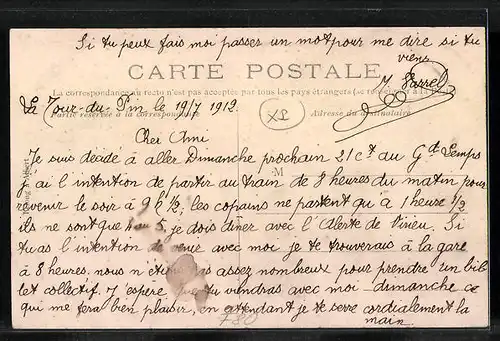 Si tu peux fais moi passer un mot pour me dire si tu
viens
CARTE POSTALE
La correspondance au recto n'est pas acceptée par tous les pays étrangers (se renseigner à la
J Sarrel
La Tour-du-Pin le 19/7 1912.
Partie réservée à la correspondance
Adresse du destinataire
Cher Ami
Je suis décidé à aller Dimanche prochain 21 ct au Gd Lemps
J'ai l'intention de partir au train de 8 heures du matin pour
revenir le soir à 9h 1/2, les copains ne partent qu'à 1 heure 1/2
ils ne sont que 4 ou 5, je dois diner avec l'Alerte de Virieu. Si
tu as l'intention de venir avec moi je te trouverais à la gare
à 8 heures, nous n'étions pas assez nombreux pour prendre un bil
let collectif. J'espère que tu viendras avec moi dimanche ce
qui me fera bien plaisir, en attendant je te serre cordialement la
main.
780